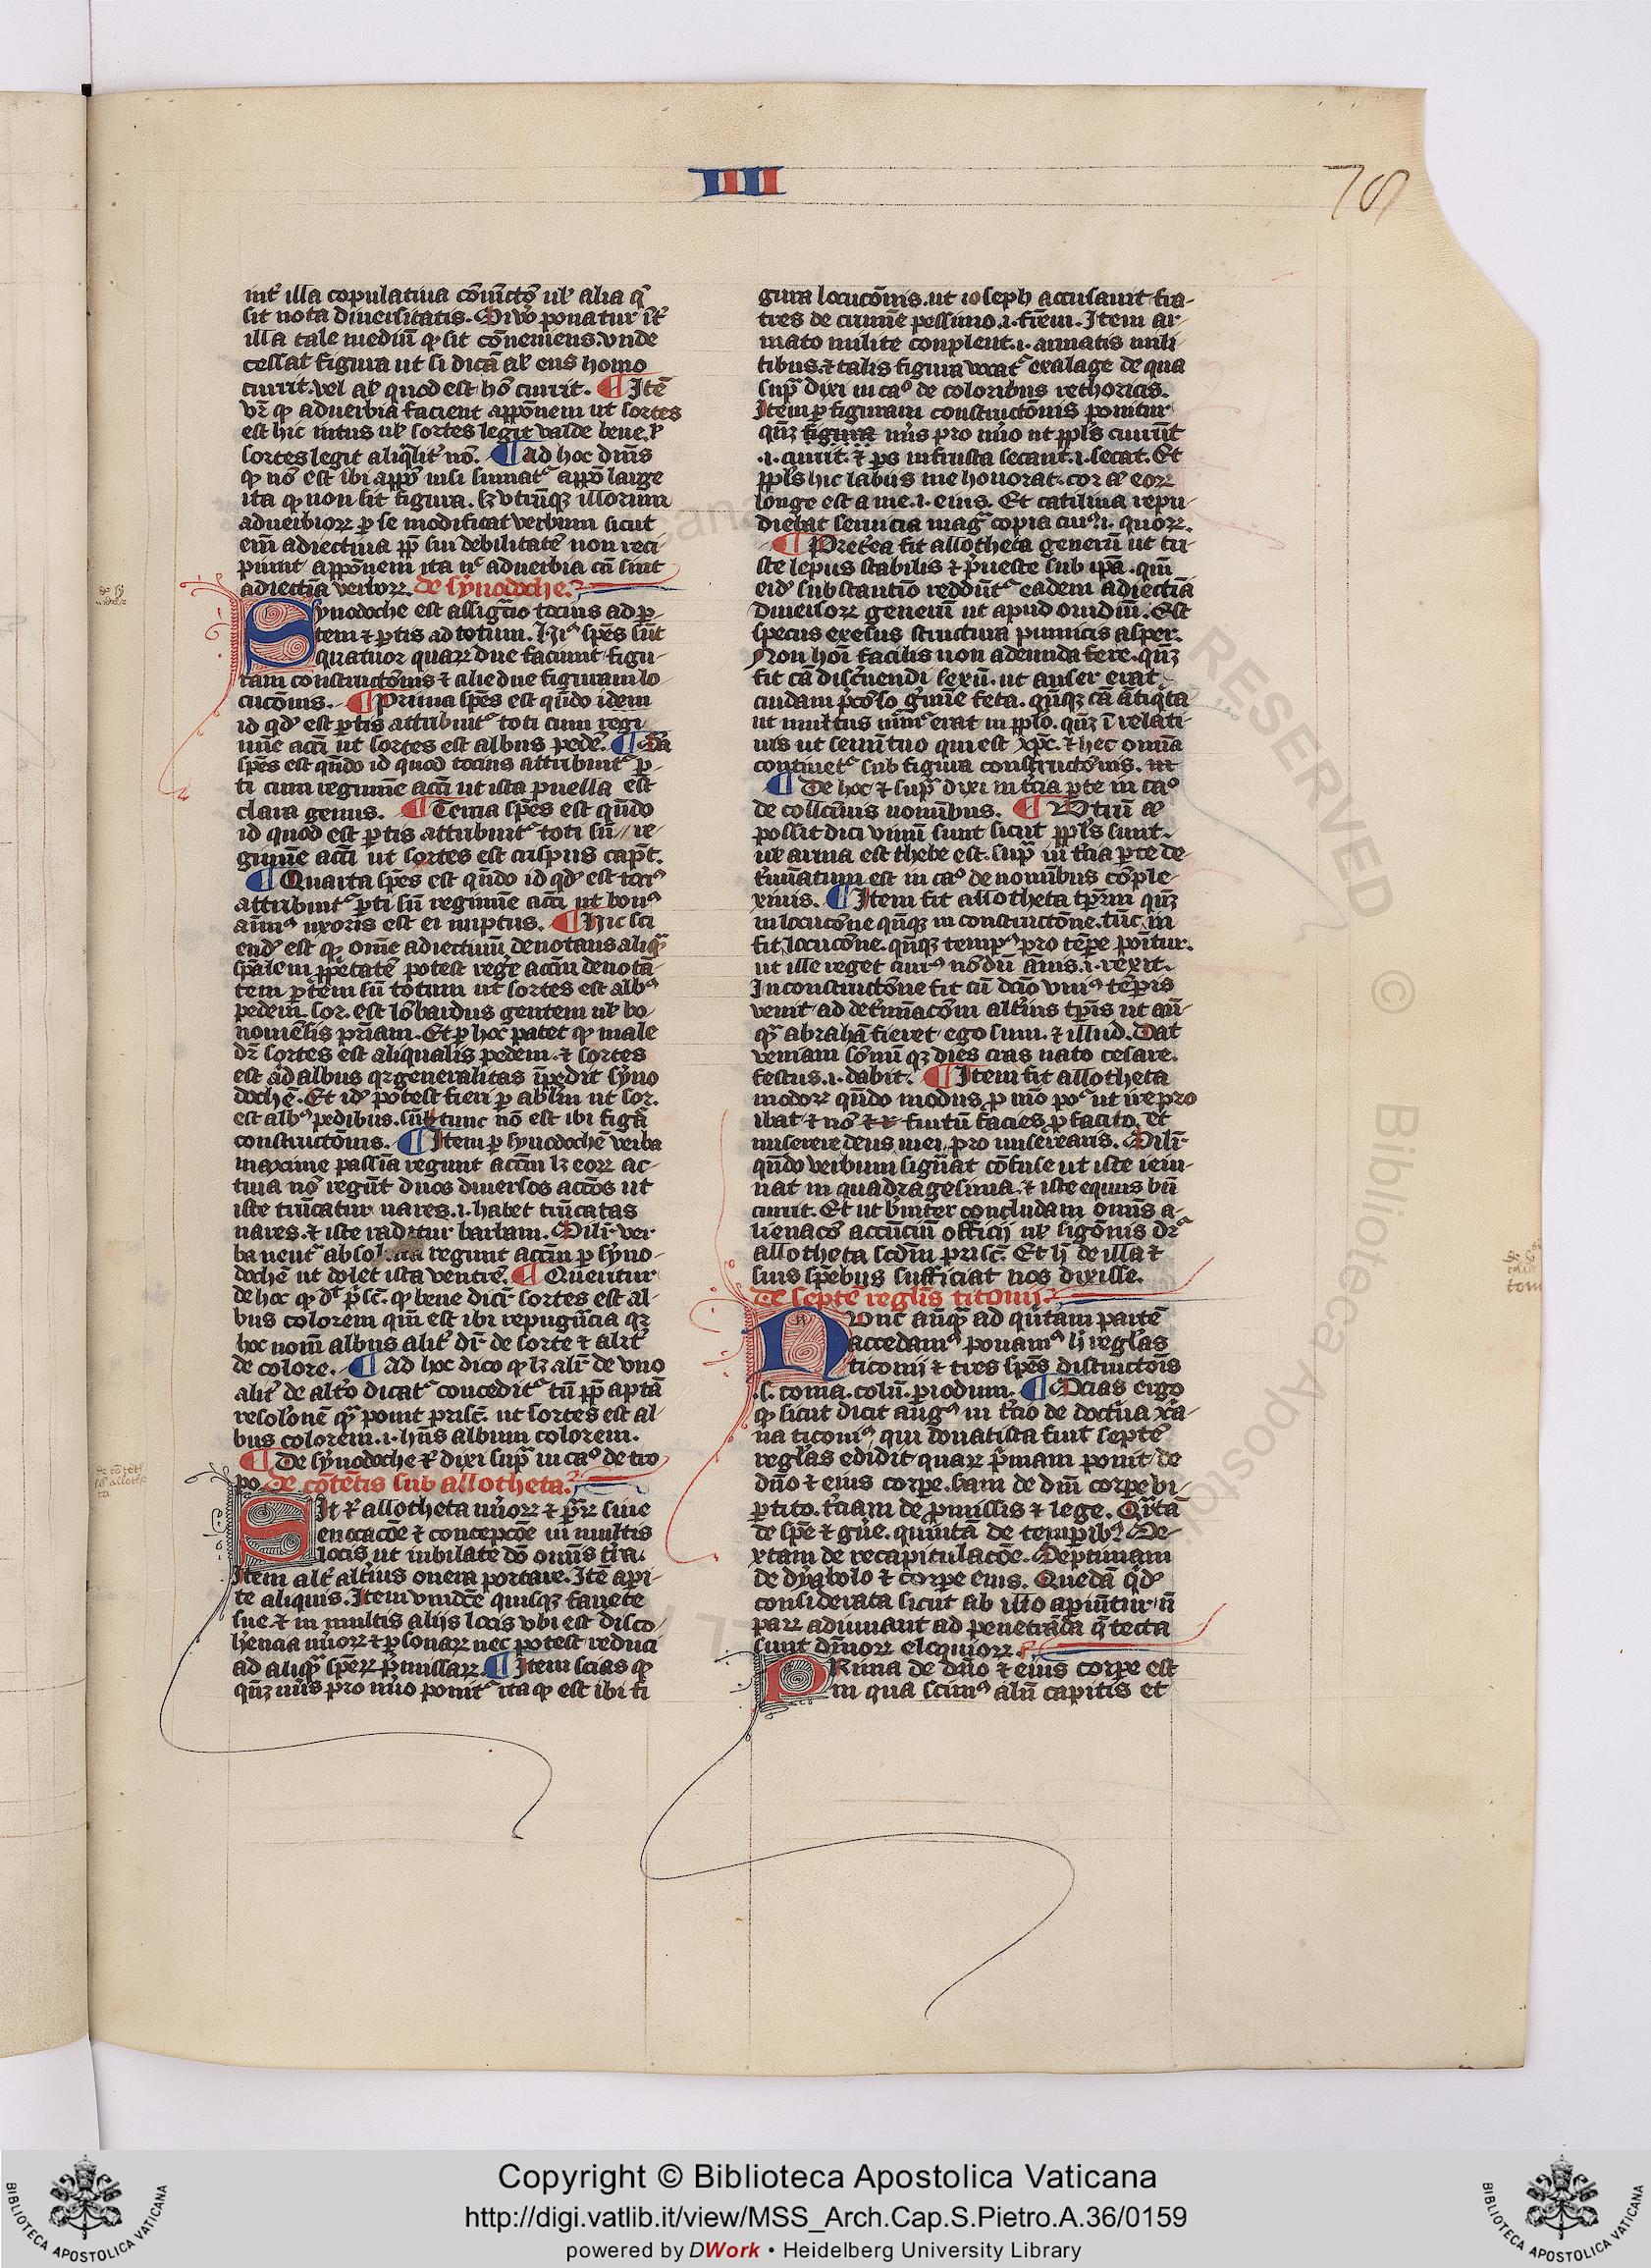 IIII
78
int᷒ illa copulatiua cōiūctō ul' alia q̄
sit nota diuersitatis. Si v̊o ponatur īt᷒
illa tale mediū ꝙ sit cōueniens. vnde
cessat figura ut si dicā al' ens homo
currit. vel al' quod est hō currit. ¶ Itē
vr̄ ꝙ aduerbia facient appōnem ut sortes
est hic intus ul' sortes legit valde bene. ł
sortes legit aliqͣlit᷒ nō. ¶ Ad hoc dm̄s
ꝙ nō est ibi appō nisi sumat᷒ appō large
ita ꝙ non sit figura. lꝫ vtrūqꝫ illorum
aduerbioꝝ ꝑ se modificat verbum sicut
em̄ adiectiua ꝓp̄ sui debilitatē non reci
piunt appōnem ita n͛ aduerbia cū sint
adiectīa verboꝝ. de synodoche.
Synodoche est assigͣtio tocius ad ꝑ-
tem ⁊ ꝑtis ad totum. Huiꝰ sp̄es sūt
quatuor quaꝝ due faciunt figu-
ram constructōnis ⁊ alie due figuram lo-
cucōnis. ¶ Prima sp̄es est qn̄do idem
id qd' est ꝑtis attribuit᷒ toti cum regi
mīe acc̄i ut sortes est albus pedē. ¶ Scd̄a
sp̄es est qn̄do id quod tocius attribuit᷒ ꝑ-
ti cum regimīe acc̄i ut ista puella est
clara genus. ¶ Tercia sp̄es est qn̄do
id quod est ꝑtis attribuit᷒ toti sn̄ re-
gimīe acc̄i ut sortes est crispus capit̄.
¶ Quarta sp̄es est qn̄do id qd' est tociꝰ
attribuit᷒ ꝑti sn̄ regimīe acc̄i ut bonꝰ
aīmꝰ uxoris est ei nuptus. ¶ Hic sci
end' est ꝙ om̄e adiectiuū denotans aliqͣ
sp̄alem ꝓp̄etatē potest reg̓e acc̄m denotā
tem ꝑtem sn̄ totum ut sortes est albꝰ
pedem̄. sor. est lōbardus gentem ul' bo-
nomēsis pr̄iam. Et ꝑ hoc patet ꝙ male
dr̄ sortes est aliqualis pedem. ⁊ sortes
est ad albus qꝛ generalitas īpedit syno
dochē. Et id' potest fieri ꝑ abl̄m ut sor.
est albꝰ pedibus. sn̄ tunc nō est ibi figͣ
constructōnis. ¶ Item ꝑ synodochē verba
maxime passīa regunt acc̄m lꝫ eoꝝ ac-
tiua nō regūt duos diuersos acc̄os ut
iste trūcatur nares. i. habet trūcatas
nares. ⁊ iste raditur barbam. Silr̄ ver-
ba neut᷒ absoluta regunt acc̄m ꝑ syno-
dochē ut dolet ista ventrē. ¶ Queritur
de hoc ꝙ dt̄ pͥsc̄. ꝙ bene dicit᷒ sortes est al-
bus colorem qm̄ est ibi repugn̄cia qꝛ
hoc nom̄ albus alit᷒ dr̄ de sorte ⁊ alit᷒
de colore. ¶ Ad hoc dico ꝙ lꝫ alit᷒ de vno
alit᷒ de alt᷒o dicat᷒ concedit᷒ tn̄ ꝓp̄ aptā
resolōnē qͣ ponit prisc̄. ut sortes est al-
bus colorem. i. hn̄s album colorem.
¶ De synodoche ⁊ᷓ dixi supͣ in caͦ de tro
po. de cōtētis sub allotheta.
Sit ⁊ᷓ allotheta nūoꝝ ⁊ ꝑ̄ꝝ siue
euocacōe ⁊ concepcōe in multis
locis ut iubilate dō omīs t᷒ra.
Item alt᷒ alt᷒ius onera portare. Itē apri-
te aliquis. Item vnidēe quisqꝫ fauete
sue. ⁊ in multis alijs locis vbi est disco-
hencia nūoꝝ ⁊ ꝑsonaꝝ nec potest reduci
ad aliqͣ sp̄eꝝ pͥmissaꝝ. ¶ Item scias ꝙ
qn̄ꝫ nūs pro nūo ponit᷒ ita ꝙ est ibi fi
gura locucōnis. ut ioseph accusauit fra-
tres de crimīe pessimo. i. fr̄em. Item ar-
mato milite conplent. i. armatis mili-
tibus. ⁊ talis figura vocat᷒ exalage de qua
supͣ dixi in caͦ de coloribus rethoricis.
Item ꝑ figuram constructōnis ponitur
qn̄ꝫ figura nūs pro nūo ut ppl̄s currūt
.i. currit. ⁊ ꝑs in frusta secant. i. secat. Et
ppl̄s hic labijs me honorat. cor aū eoꝝ
longe est a me. i. eius. Et catilina repu-
diebat seruicia magͣ copia cuiꝰ. i. quoꝝ.
¶ Pret᷒ea fit allotheta generū ut tri-
ste lepus stabilis ⁊ pͥueste sub ipā. qm̄
eid' substantīo reddūt᷒ eadem adiectīa
diuersoꝝ generū ut apud ouidiū. Est
specus exesus structura pumicis asper.
Non hoī facilis non adeunda fere. qn̄ꝫ
fit cā disc᷒nendi sexū. ut anser erat
cuidam pͥcōso g᷒mīe feta. qn̄qꝫ cā ātiqͥta
ut multus nūiᷤ erat in pplō. qn̄ꝫ ī relati-
uis ut semīi tuo qui est xp̄c. ⁊ hec omīa
continet᷒ sub figura constructōnis.
¶ De hoc ⁊ supͣ dixi in t᷒cia ꝑte in caͦ
de collectiuis nomībus. ¶ Vtrū aū
possit dici vinū sunt sicut ppl̄s sunt.
ul' arma est thebe est. supͣ in t᷒cia ꝑte de-
t᷒miatum est in caͦ de nomībus cōple-
xiuis. ¶ Item fit allotheta tp̄rm qn̄ꝫ
in locucōne qn̄qꝫ in constructōne. tūc in
fit locucōne. qn̄qꝫ tempꝰ pro tēpe ponitur.
ut ille reget ciuiꝰ nōdū ānis. i. rexit.
In constructōne fit cū dcīo vniꝰ tēpis
venit ad det᷒miacōm alt᷒ius tp̄is ut an̄-
qͣ abrahā fieret ego sum. ⁊ illud. Dat
veniam sōmū qꝫ dies cras nato cesare.
festus. i. dabit. ¶ Item fit allotheta
modoꝝ qn̄do modus ꝑ mō poᷤ ut ire pro
ibat ⁊ nō furtū facies ꝑ facito. Et
miserere deus mei. pro miserearis. Silr̄
qn̄do verbum sign̄at cōfuse ut iste ieiu-
nat in quadragesima. ⁊ iste equus bn̄
currit. Et ut b᷒uiter concludam omīs a-
lienacō accn̄ciū officij ul' sigōnis dr̄
allotheta scd̄m prisc̄. Et hͥ de illa ⁊
suis sp̄ebus sufficiat nos dixisse.
de septē reglis titonij.
Nunc anqͣ ad qͥntam partē
accedamꝰ ponamꝰ hͥ reglas
ticonij ⁊ tres sp̄es distinctōis
.s. coma. colū. ꝑiodum. ¶ Scias ergo
ꝙ sicut dicit augꝰ in t᷒cio de doct᷒ina xͥa-
na ticoniꝰ qui donatista fuit septē
reglas edidit quaꝝ pͥmam ponit de
dn̄o ⁊ eius corꝑe. scd̄am de dn̄i corꝑe bi-
ꝑtito. t᷒ciam de ꝓmissis ⁊ lege. Qͣrtā
de sp̄e ⁊ gn̄e. quintā de temporibꝰ. Se-
xtam de recapitulacōe. Septimam
de dyabolo ⁊ corꝑe eius. Quedā qͥd'
considerata sicut ab illo apiūtur n̄
paꝝ adiuuant ad penetrāda q̄ tecta
sunt diuinoꝝ eloquioꝝ.
PRima de dn̄o ⁊ eius corꝑe est
in qua scimꝰ alin̄ capitis et
RESERVED © Biblioteca Apostolica
Copyright © Biblioteca Apostolica Vaticana
http://digi.vatlib.it/view/MSS_Arch.Cap.S.Pietro.A.36/0159
powered by DWork • Heidelberg University Library
BIBLIOTECA APOSTOLICA VATICANA
BIBLIOTECA APOSTOLICA VATICANA